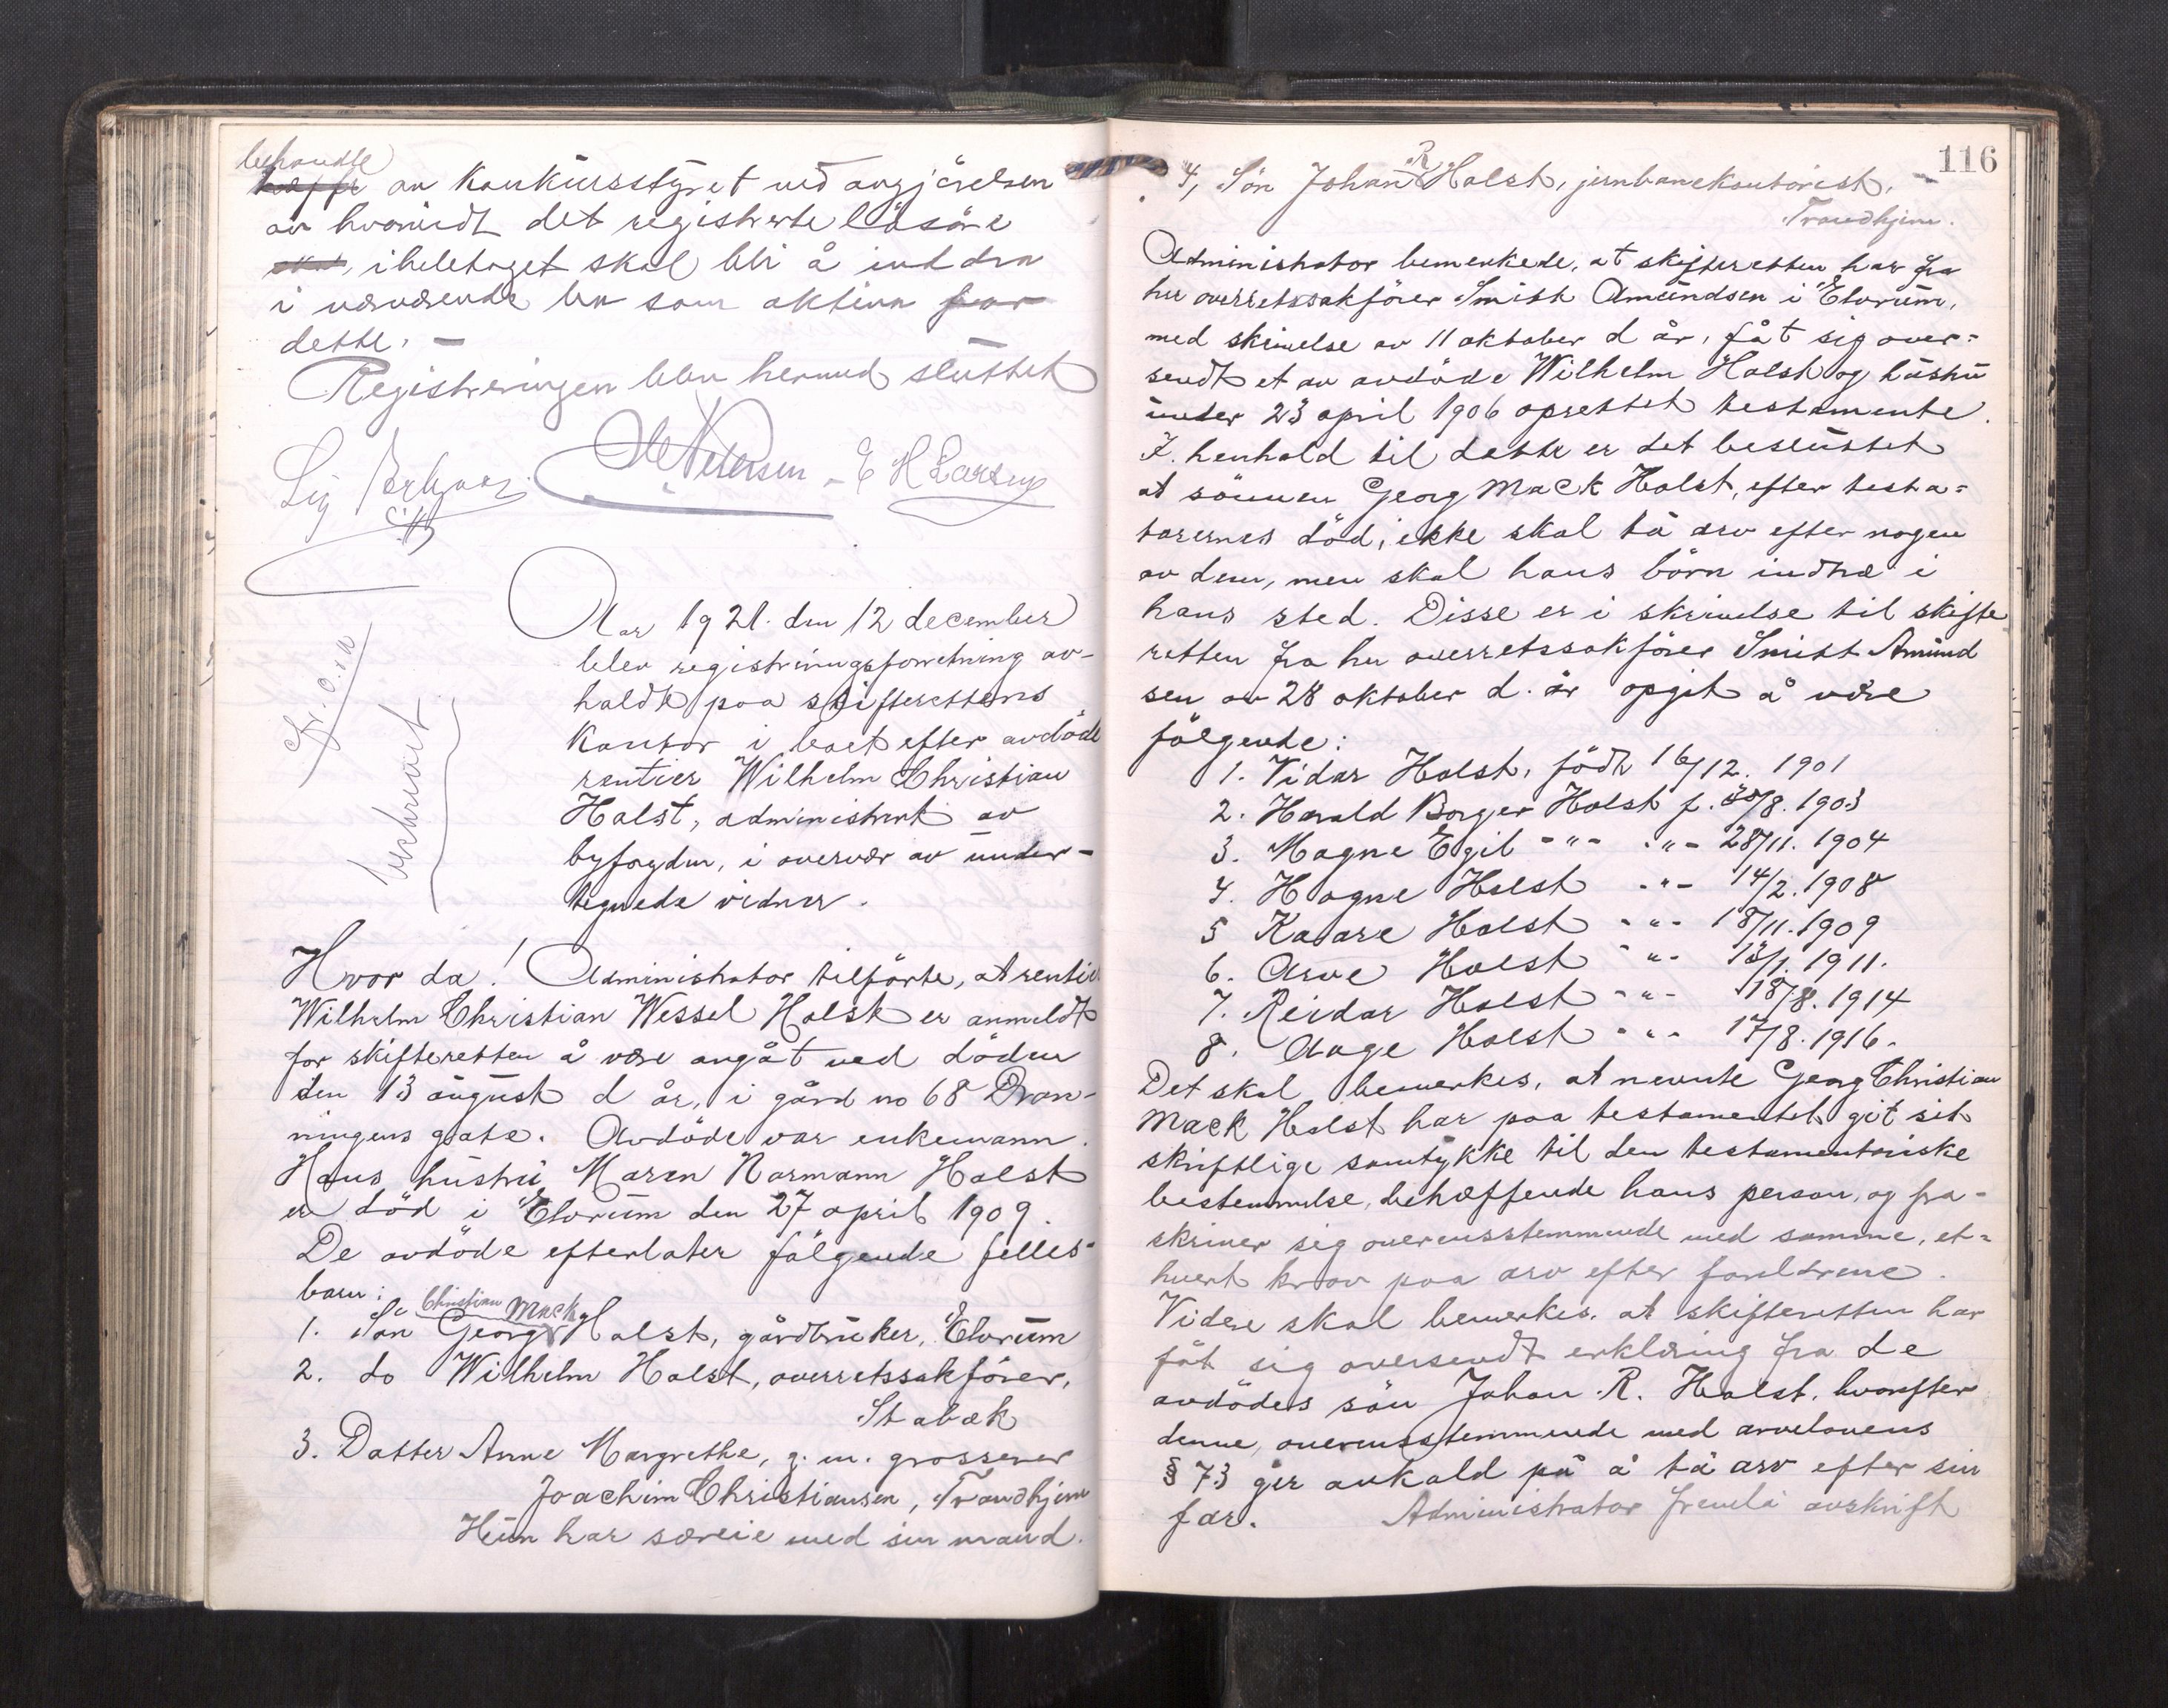 behandle
av konkursstyret ved avgjörelsen
av hvorvidt det registrerte lösöre
iheletaget skal bli å inddra
i nærværende bo som aktiva for
dette. -
Registreringen blev hermed sluttet
Petersen - E H Larsen
Aar 1921. den 12 december
blev registreringsforretning av-
holdt paa skifterettens
kontor i boet efter avdöde
rentier Wilhelm Christian
Holst, administrert av
byfogden, i overvær av under-
tegnede vidner.
Hvor da! Administrator tilförte, at rentier
Wilhelm Christian Wessel Holst er anmeldt
for skifteretten å være avgåt ved döden
den 13 august d år, i gård no 68 Dron-
ningens gate. Avdöde var enkemann.
Hans hustru Maren Normann Holst
er död i Elverum den 27 april 1909.
De avdöde efterlater fölgende felles-
barn:
1. Sön Georg Christian Mack Holst, gårdbruker, Elverum
2. do Wilhelm Holst, overretssakförer,
Stabæk
3. Datter Anne Margrethe, g. m. grosserer
Joachim Christiansen, Trondhjem
Hun har særeie med sin mand.
116
4, Sön Johan R Holst, jernbanekontorist,
Trondhjem.
Administrator bemerkede, at skifteretten har fra
hr overretssakförer Smith Amundsen i Elverum,
med skrivelse av 11 oktober d år, fåt sig over-
sendt et av avdöde Wilhelm Holst og hustru
under 23 april 1906 oprettet testamente.
I henhold til dette er det besluttet
at sönnen Georg Mack Holst, efter testa-
torernes död, ikke skal ta arv efter nogen
av dem, men skal hans börn indtræ i
hans sted. Disse er i skrivelse til skifte
retten fra hr overretssakförer Smith Amund
sen av 28 oktober d. år opgit å være
fölgende:
1. Vidar Holst, födt 16/12. 1901
2. Harald Borger Holst f. 30/8. 1903
3. Magne Egil -"- -"- 28/11. 1904
4. Hogne Holst -"- 14/2. 1908
5 Kaare Holst -"- 18/11. 1909
6. Arve Holst -"- 13/1. 1911.
7. Reidar Holst -"- 18/8. 1914
8. Aage Holst -"- 17/8. 1916.
Det skal bemerkes, at nevnte Georg Christian
Mack Holst har paa testamentet git sit
skriftlige samtykke til den testamentariske
bestemmelse, betreffende hans person, og fra-
skriver sig overensstemmende med samme, et-
hvert krav paa arv efter foreldrene.
Videre skal bemerkes, at skifteretten har
fåt sig oversendt erklæring fra de
avdödes sön Johan R. Holst, hvorefter
denne, overensstemmende med arvelovens
§ 73 gir avkald på å ta arv efter sin
far. Administrator fremla avskrift